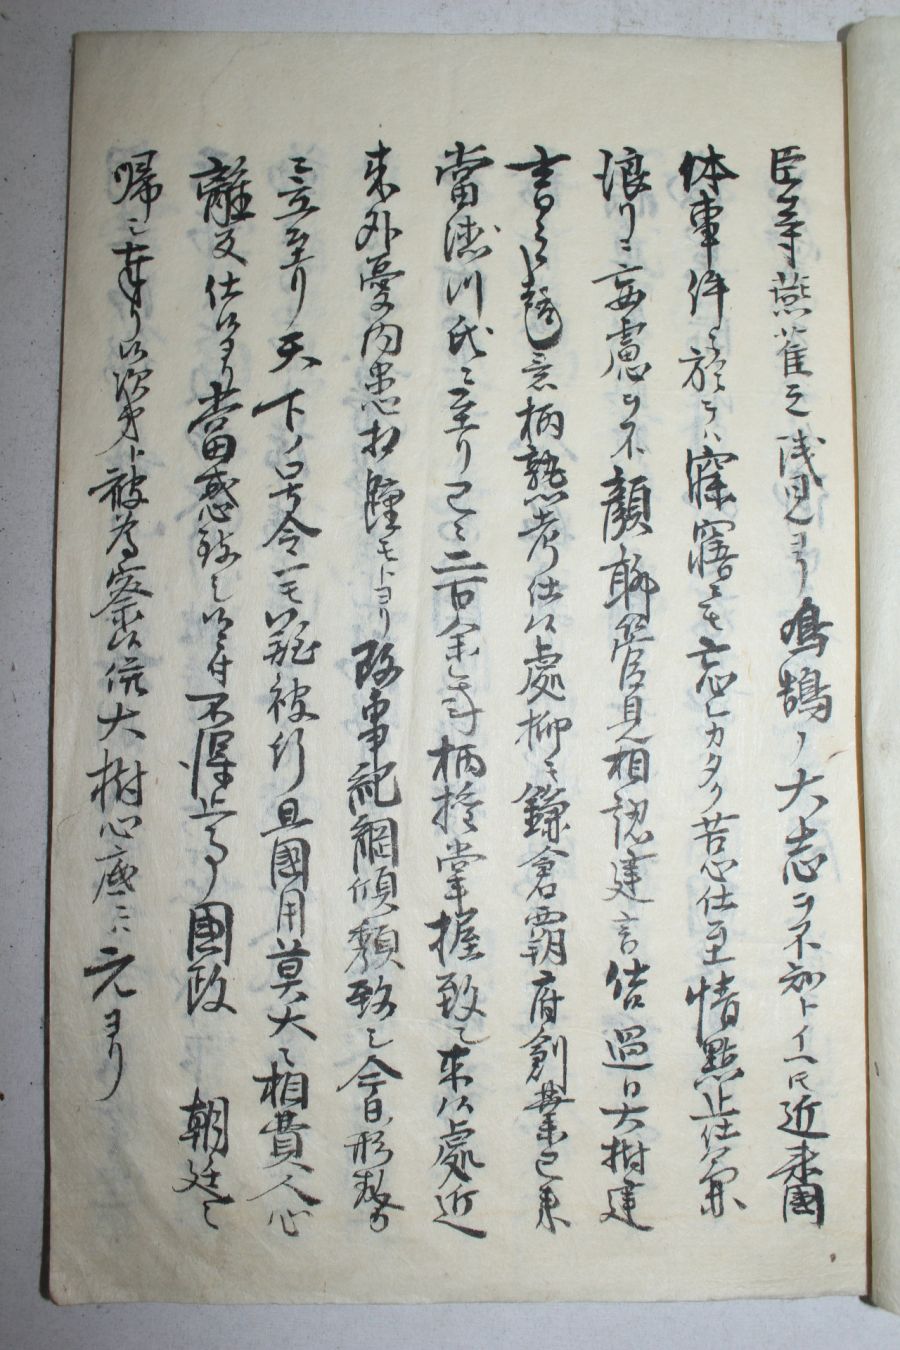 臣等燕雀之浅見ヨリ鴻鵠ノ大志ヲ不知トイヘ𪜈近来國
体事件ニ於テハ寐寤ニモ忘レカタク苦心仕至情黙止仕兼
浪リニ妄慮ヲ不顧聊管見相認建言仕過日大樹建
言之趣意柄熟考仕候處抑モ鎌倉覇府創業已来
當徳川氏ニ至リ已ニ二百余年柄権掌握致シ来候處近
来外憂内患相踵モトヨリ政事紀綱傾頽致シ今日形勢
ニ立至リ天下ノ号令一モ難被行且國用莫大ニ相費人心
離反仕候ヨリ當惑致シ候ニ付不得止ヨリ國政 朝廷ニ
帰シ奉リ候次第ト被為察候併大樹心底ニハ元ヨリ